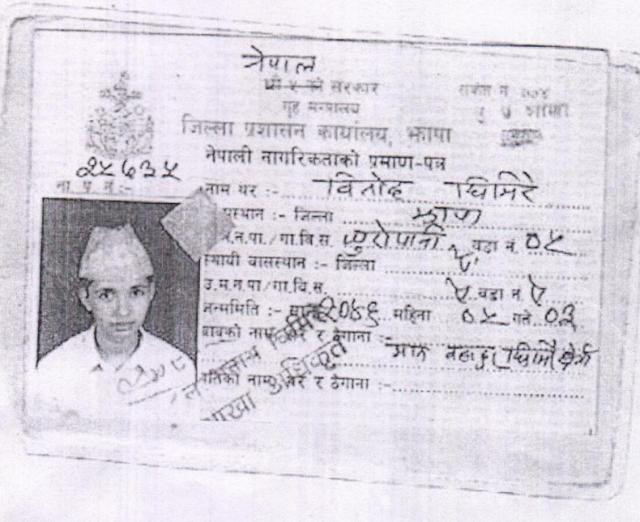 नेपाल
श्री ५ को सरकार
गृह मन्त्रालय
जिल्ला प्रशासन कार्यालय, झापा
नेपाली नागरिकताको प्रमाण-पत्र
२५७३५
ना. प्र. नं.:-
नाम थर :- विनोद घिमिरे
स्थान :- जिल्ला झापा
न.पा./गा.वि.स. वडा नं. ०५
स्थायी वासस्थान :- जिल्ला ऐ
उ.म.न.पा./गा.वि.स. ऐ वडा नं. ऐ
जन्ममिति :- साल २०४६ महिना ०५ गते ०३
बाबुको नाम थर र ठेगाना :-
मान बहादुर घिमिरे क्षेत्री
पतिको नाम थर र ठेगाना :-
शाखा अधिकृत